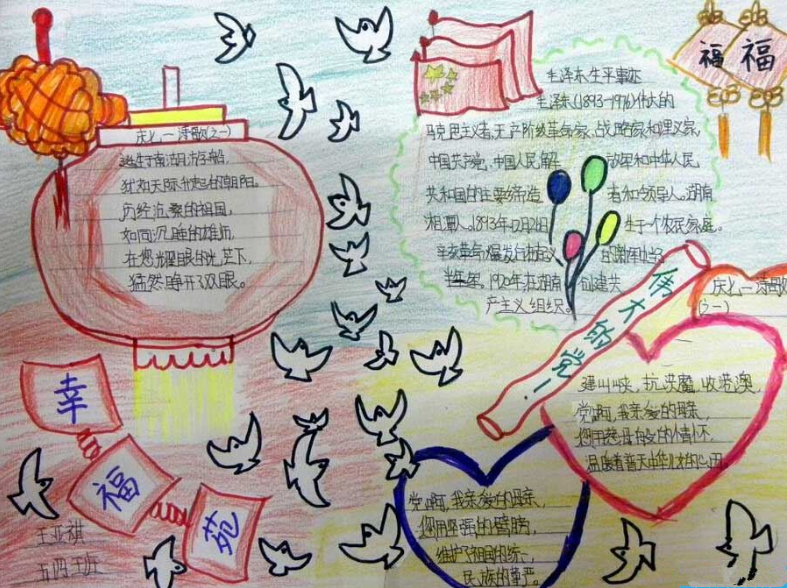 庆七一诗歌(之一)
诞生于南湖游船,
犹如天际升起的朝阳。
历经沧桑的祖国,
如同沉睡的雄狮,
在您光耀眼的光芒下,
猛然睁开了双眼。
幸
福
苑
王亚祺
毛泽东生平事迹
毛泽东(1893-1976)伟大的
马克思主义者,无产阶级革命家、战略家和理论家,
中国共产党、中国人民解放军和中华人民
共和国的主要缔造者和领导人。湖南
湘潭人。1893年12月26日生于一个农民家庭。
辛亥革命爆发后
半年。1920年在湖南创建共
产主义组织。
福
福
伟大的党!
庆七一诗歌
(之一)
建山峡,抗洪魔,收港澳,
党啊,我亲爱的母亲,
您用慈母般的情怀,
温暖着普天中华儿女的心田
党啊,我亲爱的母亲,
您用坚强的臂膀,
维护了祖国的统一,
民族的尊严。